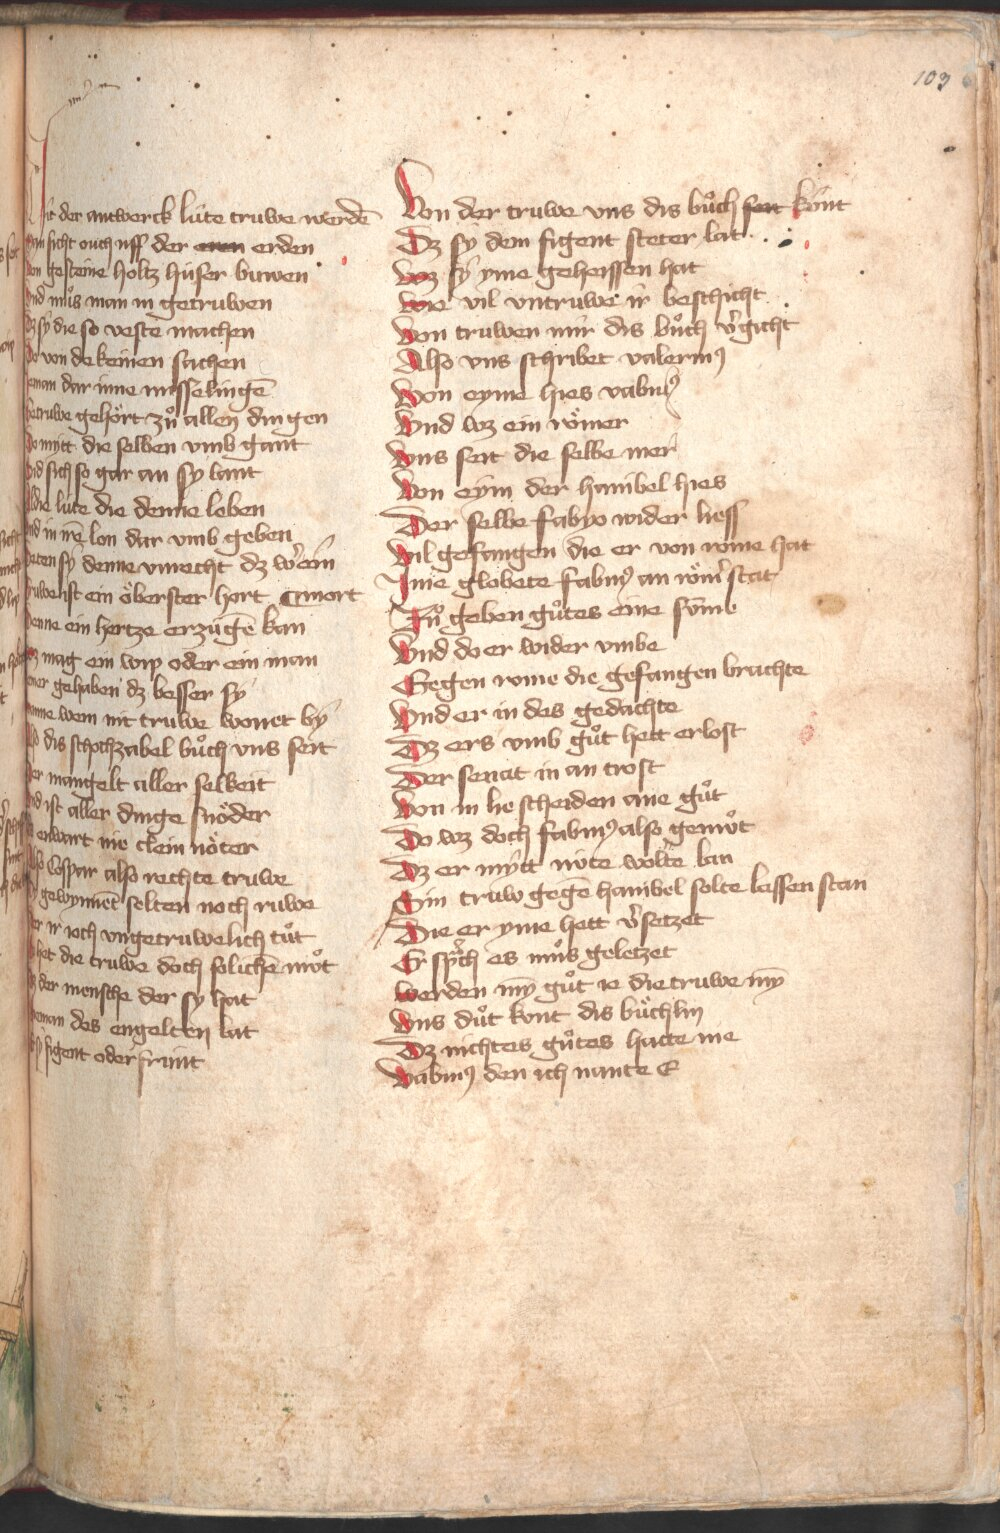 103
Mir der antwerck lúte truwe werdē
Man sicht ouch uff der eren erden
Von gesteine holtz húser buwen
Vnd můs man in getruwen
Dz sy die so veste machen
Do von dekeinen sachen
ieman dar inne misselingē
Getruwe gehört zů allen dingen
Do mitt die selben vmb gant
Vnd sich so gar an sy lant
Alle lúte die denne leben
Vnd in irē lon dar vmb geben
Deten sy denne vnrecht dz w'ein mort
Truwe ist ein öberster hort
Denne ein hertze erzúgē kan
Dz mag ein wip oder ein man
gehaben dz besser sy
Denne wem nit truwe wonet by
Also dis schochzabel bůch vns seit
Der mangelt aller selkeit
Vnd ist aller dinge snöder
enwart nie clein nöter
Also lospar also rechte truwe
gewynnēt selten noch ruwe
Der ir ioch vngetruwelich tůt
het die truwe doch solichē můt
Dz der mensche der sy hat
nieman des engelten lat
Er sy figent oder frúnt
Von der truwe vns dis bůch seit kúnt
Dz sy dem figent steter lat
Wz sy yme geheissen hat
Wie vil vntruwe ir beschicht
Von truwen mir dis bůch v'gicht
Also vns schribet valerius
Von eyme hies vabius
Vnd wz ein römer
Vns seit die selbe mer
Von eym der hanibel hies
Der selbe fabyo wider liess
Vil gefangen die er von rome hat
Ime globete fabius an röm' stat
Zů geben gůtes eine sūmb
Vnd do er wider vmbe
Gegen rome die gefangen brachte
Vnd er in des gedachte
Dz ers vmb gůt hett erlost
Der senat in an trost
Von in lie scheiden ane gůt
Do wz doch fabius also gemůt
Dz er mitt nöte wolte lan
Sin truw gegē hanibel solte lessen stan
Die er yme hett v'setzet
Er sprach es můs geletzet
Werden mȳ gůt ie die truwe mȳ
Vns důt kont dis bůchlin
Dz nichtes gůtes hatte me
Vabius den ich nante E